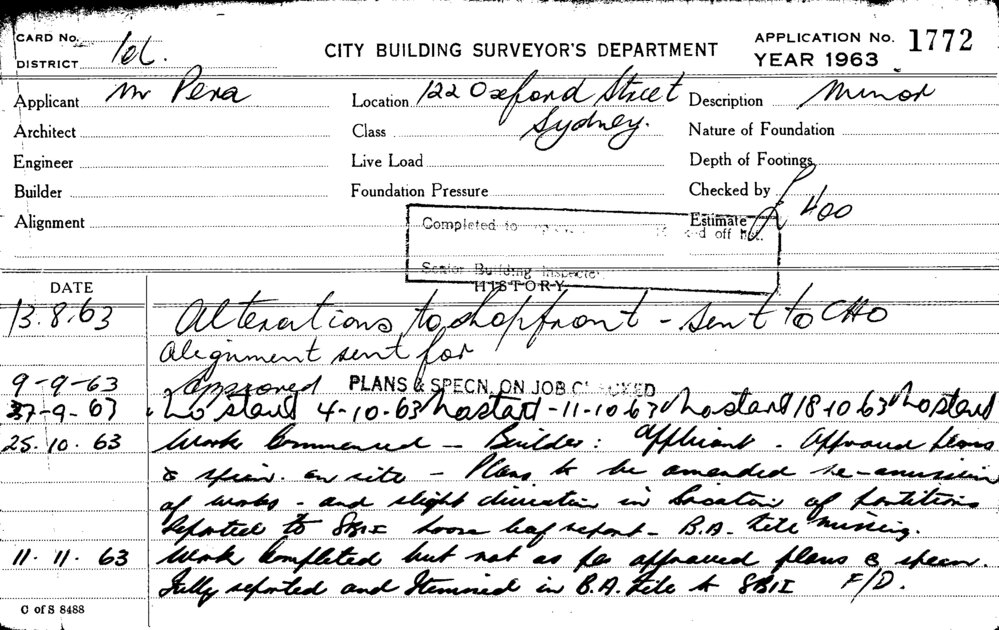 CARD No.
DISTRICT
CITY BUILDING SURVEYOR'S DEPARTMENT
APPLICATION No. 1772
YEAR 1963
Applicant Mr Pera
Location 122 Oxford Street
Sydney.
Description Minor
Architect
Class
Nature of Foundation
Engineer
Live Load
Depth of Footings
Builder
Foundation Pressure
Checked by
Alignment
Estimate £ 400
Completed to
off
Senior Building Inspector
HISTORY
DATE
13.8.63 Alterations to shopfront - sent to CHO
Alignment sent for
9-9-63 Approved PLANS & SPECN. ON JOB CHECKED
27-9-63 No start 4-10-63 No start - 11-10-63 No start 18-10-63 No start
25.10.63 Work Commenced - Builder: Applicant - Approved plans
& specn. on site - Plans to be amended re-omission
of works - and slight deviation in location of partitions
Reported to SBI loose leaf report - B.A. file missing.
11.11.63 Work Completed but not as per approved plans & specn.
Fully reported and Itemised in B.A. file to SBI F/D.
C of S 8488